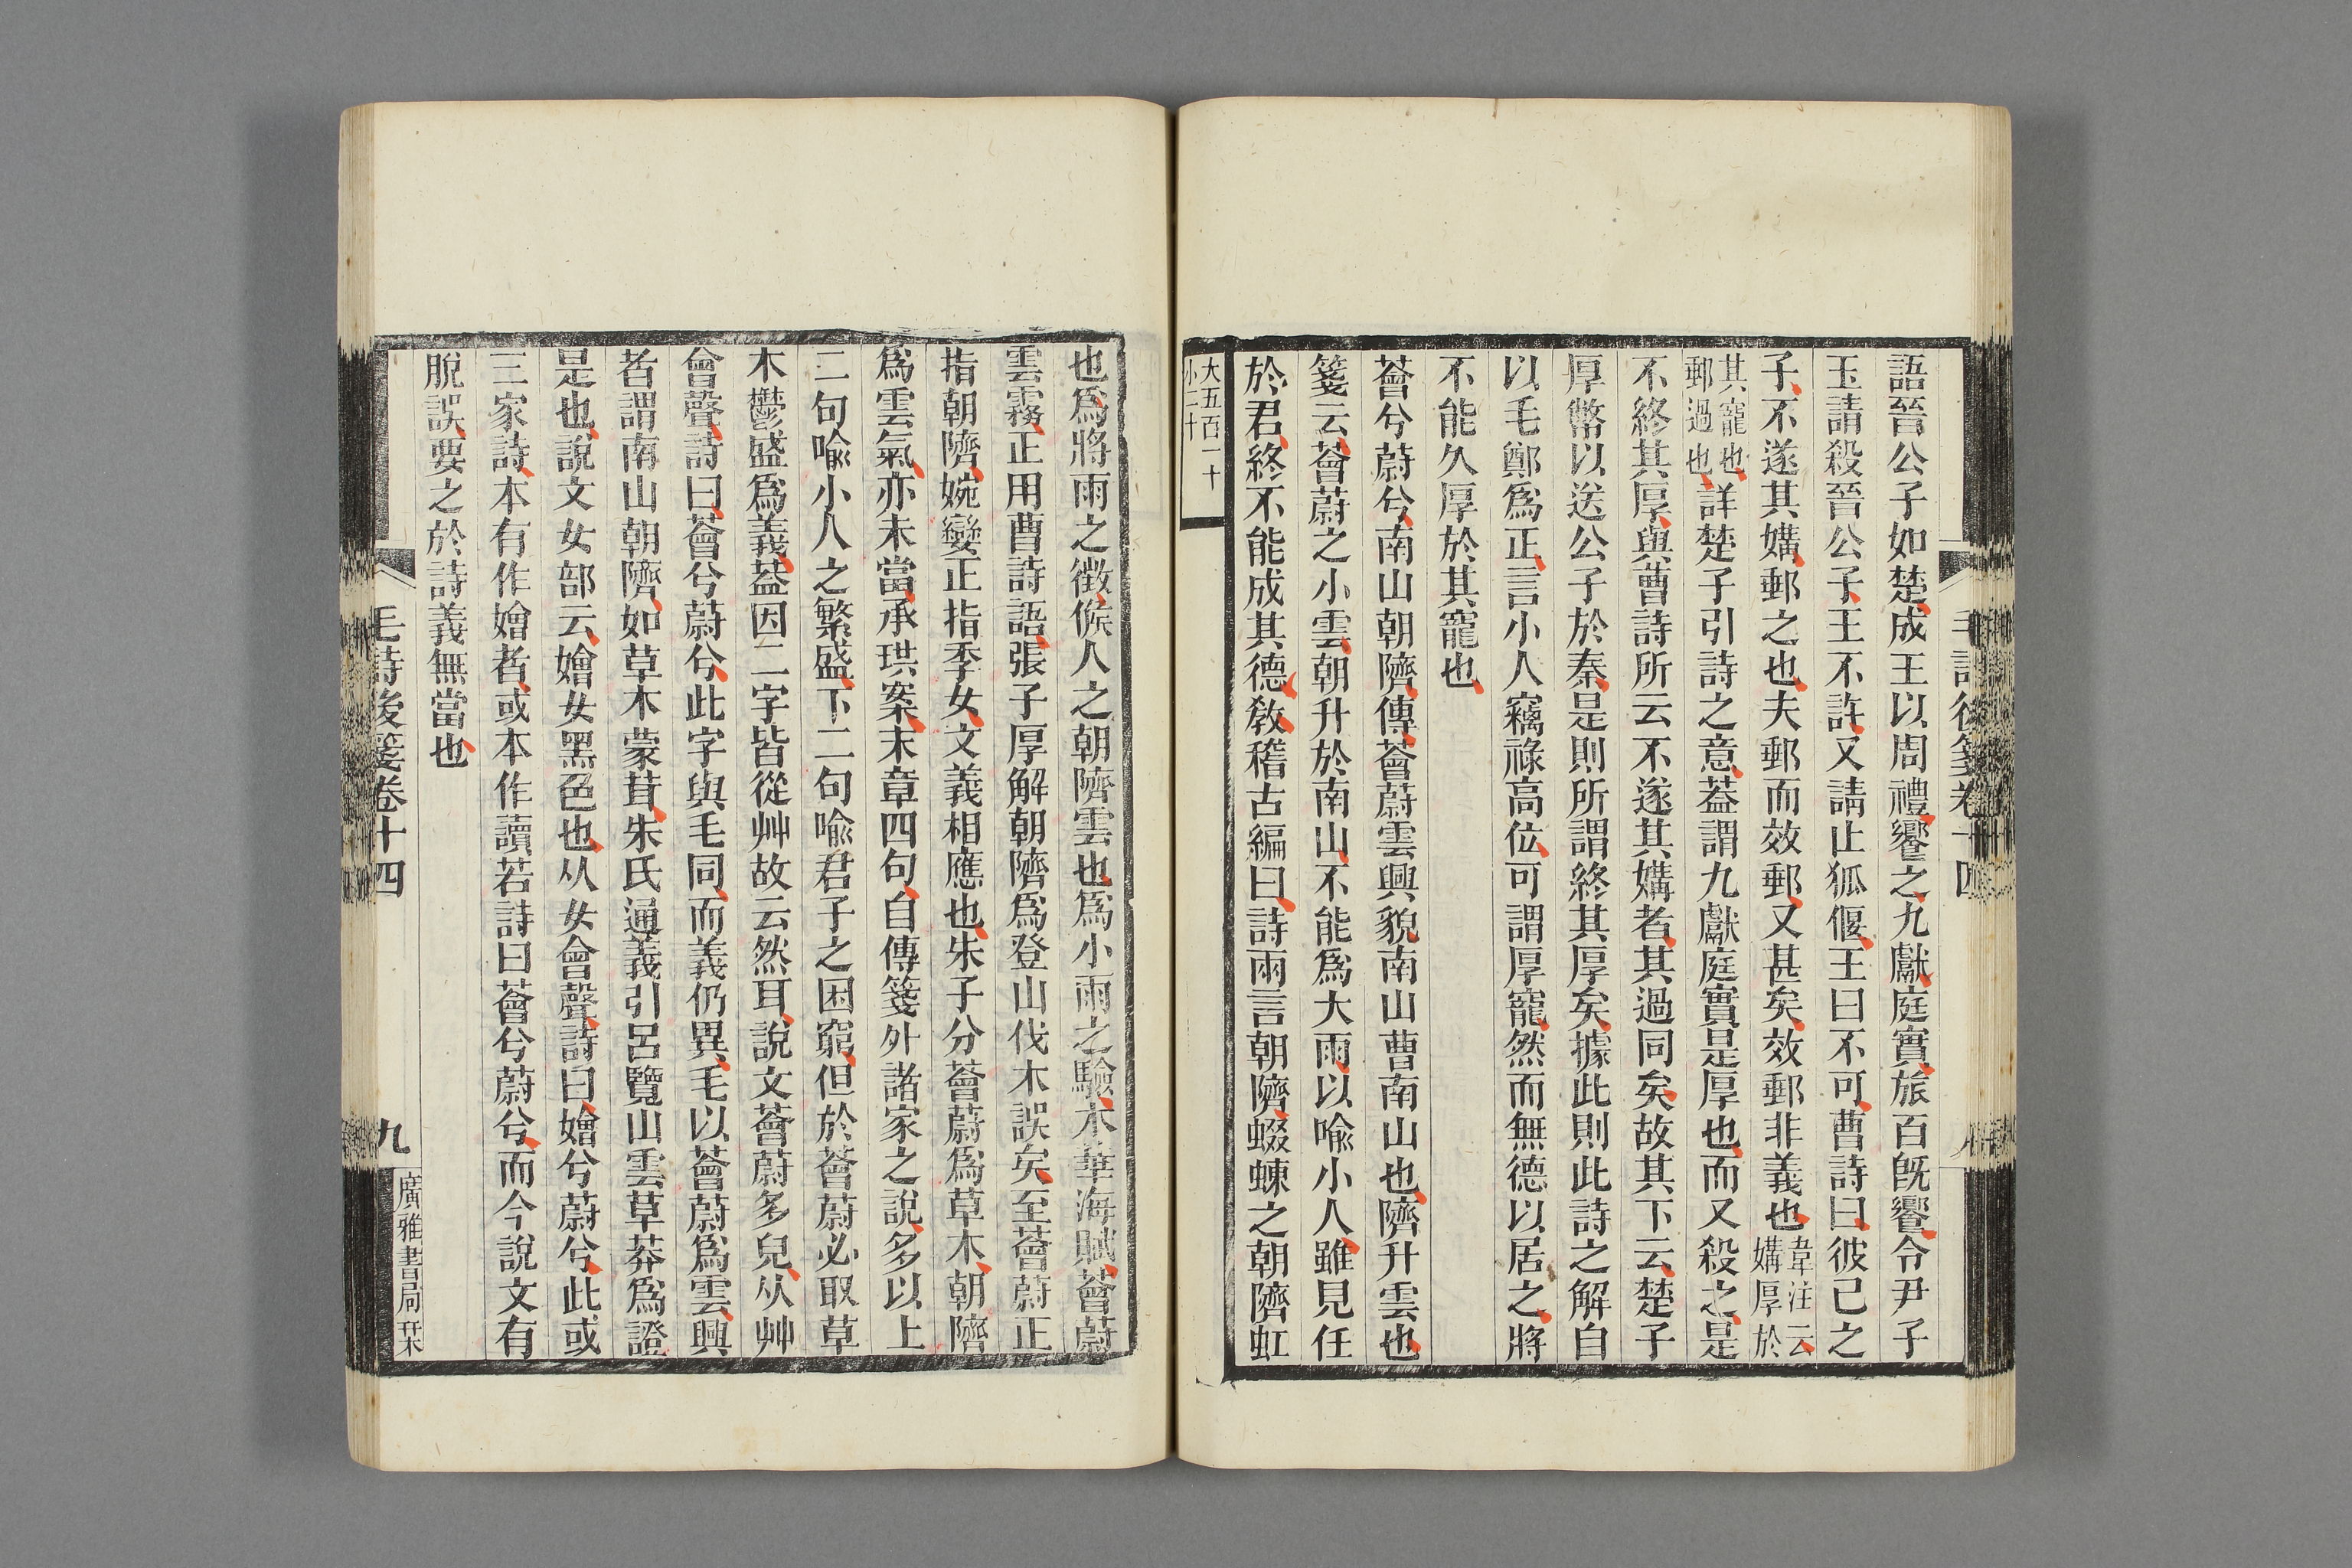 語晉公子如楚成王以周禮饗之九獻庭實旅百旣饗令尹子
玉請殺晉公子王不許又請止狐偃王曰不可曹詩曰彼己之
子不遂其媾郵之也夫郵而效郵又甚矣效郵非義也韋注云媾厚於
其寵也郵過也詳楚子引詩之意葢謂九獻庭實是厚也而又殺之是
不終其厚與曹詩所云不遂其媾者其過同矣故其下云楚子
厚幣以送公子於秦是則所謂終其厚矣據此則此詩之解自
以毛鄭爲正言小人竊祿高位可謂厚寵然而無德以居之將
不能久厚於其寵也
薈兮蔚兮南山朝隮傳薈蔚雲興貌南山曹南山也隮升雲也
箋云薈蔚之小雲朝升於南山不能爲大雨以喻小人雖見任
於君終不能成其德敎稽古編曰詩兩言朝隮蝃蝀之朝隮虹
大五百一十
小二十
也爲將雨之徵候人之朝隮雲也爲小雨之驗木華海賦薈蔚
雲霧正用曹詩語張子厚解朝隮爲登山伐木誤矣至薈蔚正
指朝隮婉孌正指季女文義相應也朱子分薈蔚爲草木朝隮
爲雲氣亦未當承珙案末章四句自傳箋外諸家之說多以上
二句喻小人之繁盛下二句喻君子之困窮但於薈蔚必取草
木鬱盛爲義葢因二字皆從艸故云然耳說文薈蔚多皃从艸
會聲詩曰薈兮蔚兮此字與毛同而義仍異毛以薈蔚爲雲興
者謂南山朝隮如草木蒙茸朱氏通義引呂覽山雲草莽爲證
是也說文女部云嬒女黑色也从女會聲詩曰嬒兮蔚兮此或
三家詩本有作嬒者或本作讀若詩曰薈兮蔚兮而今說文有
脫誤要之於詩義無當也
毛詩後箋卷十四
九
廣雅書局栞